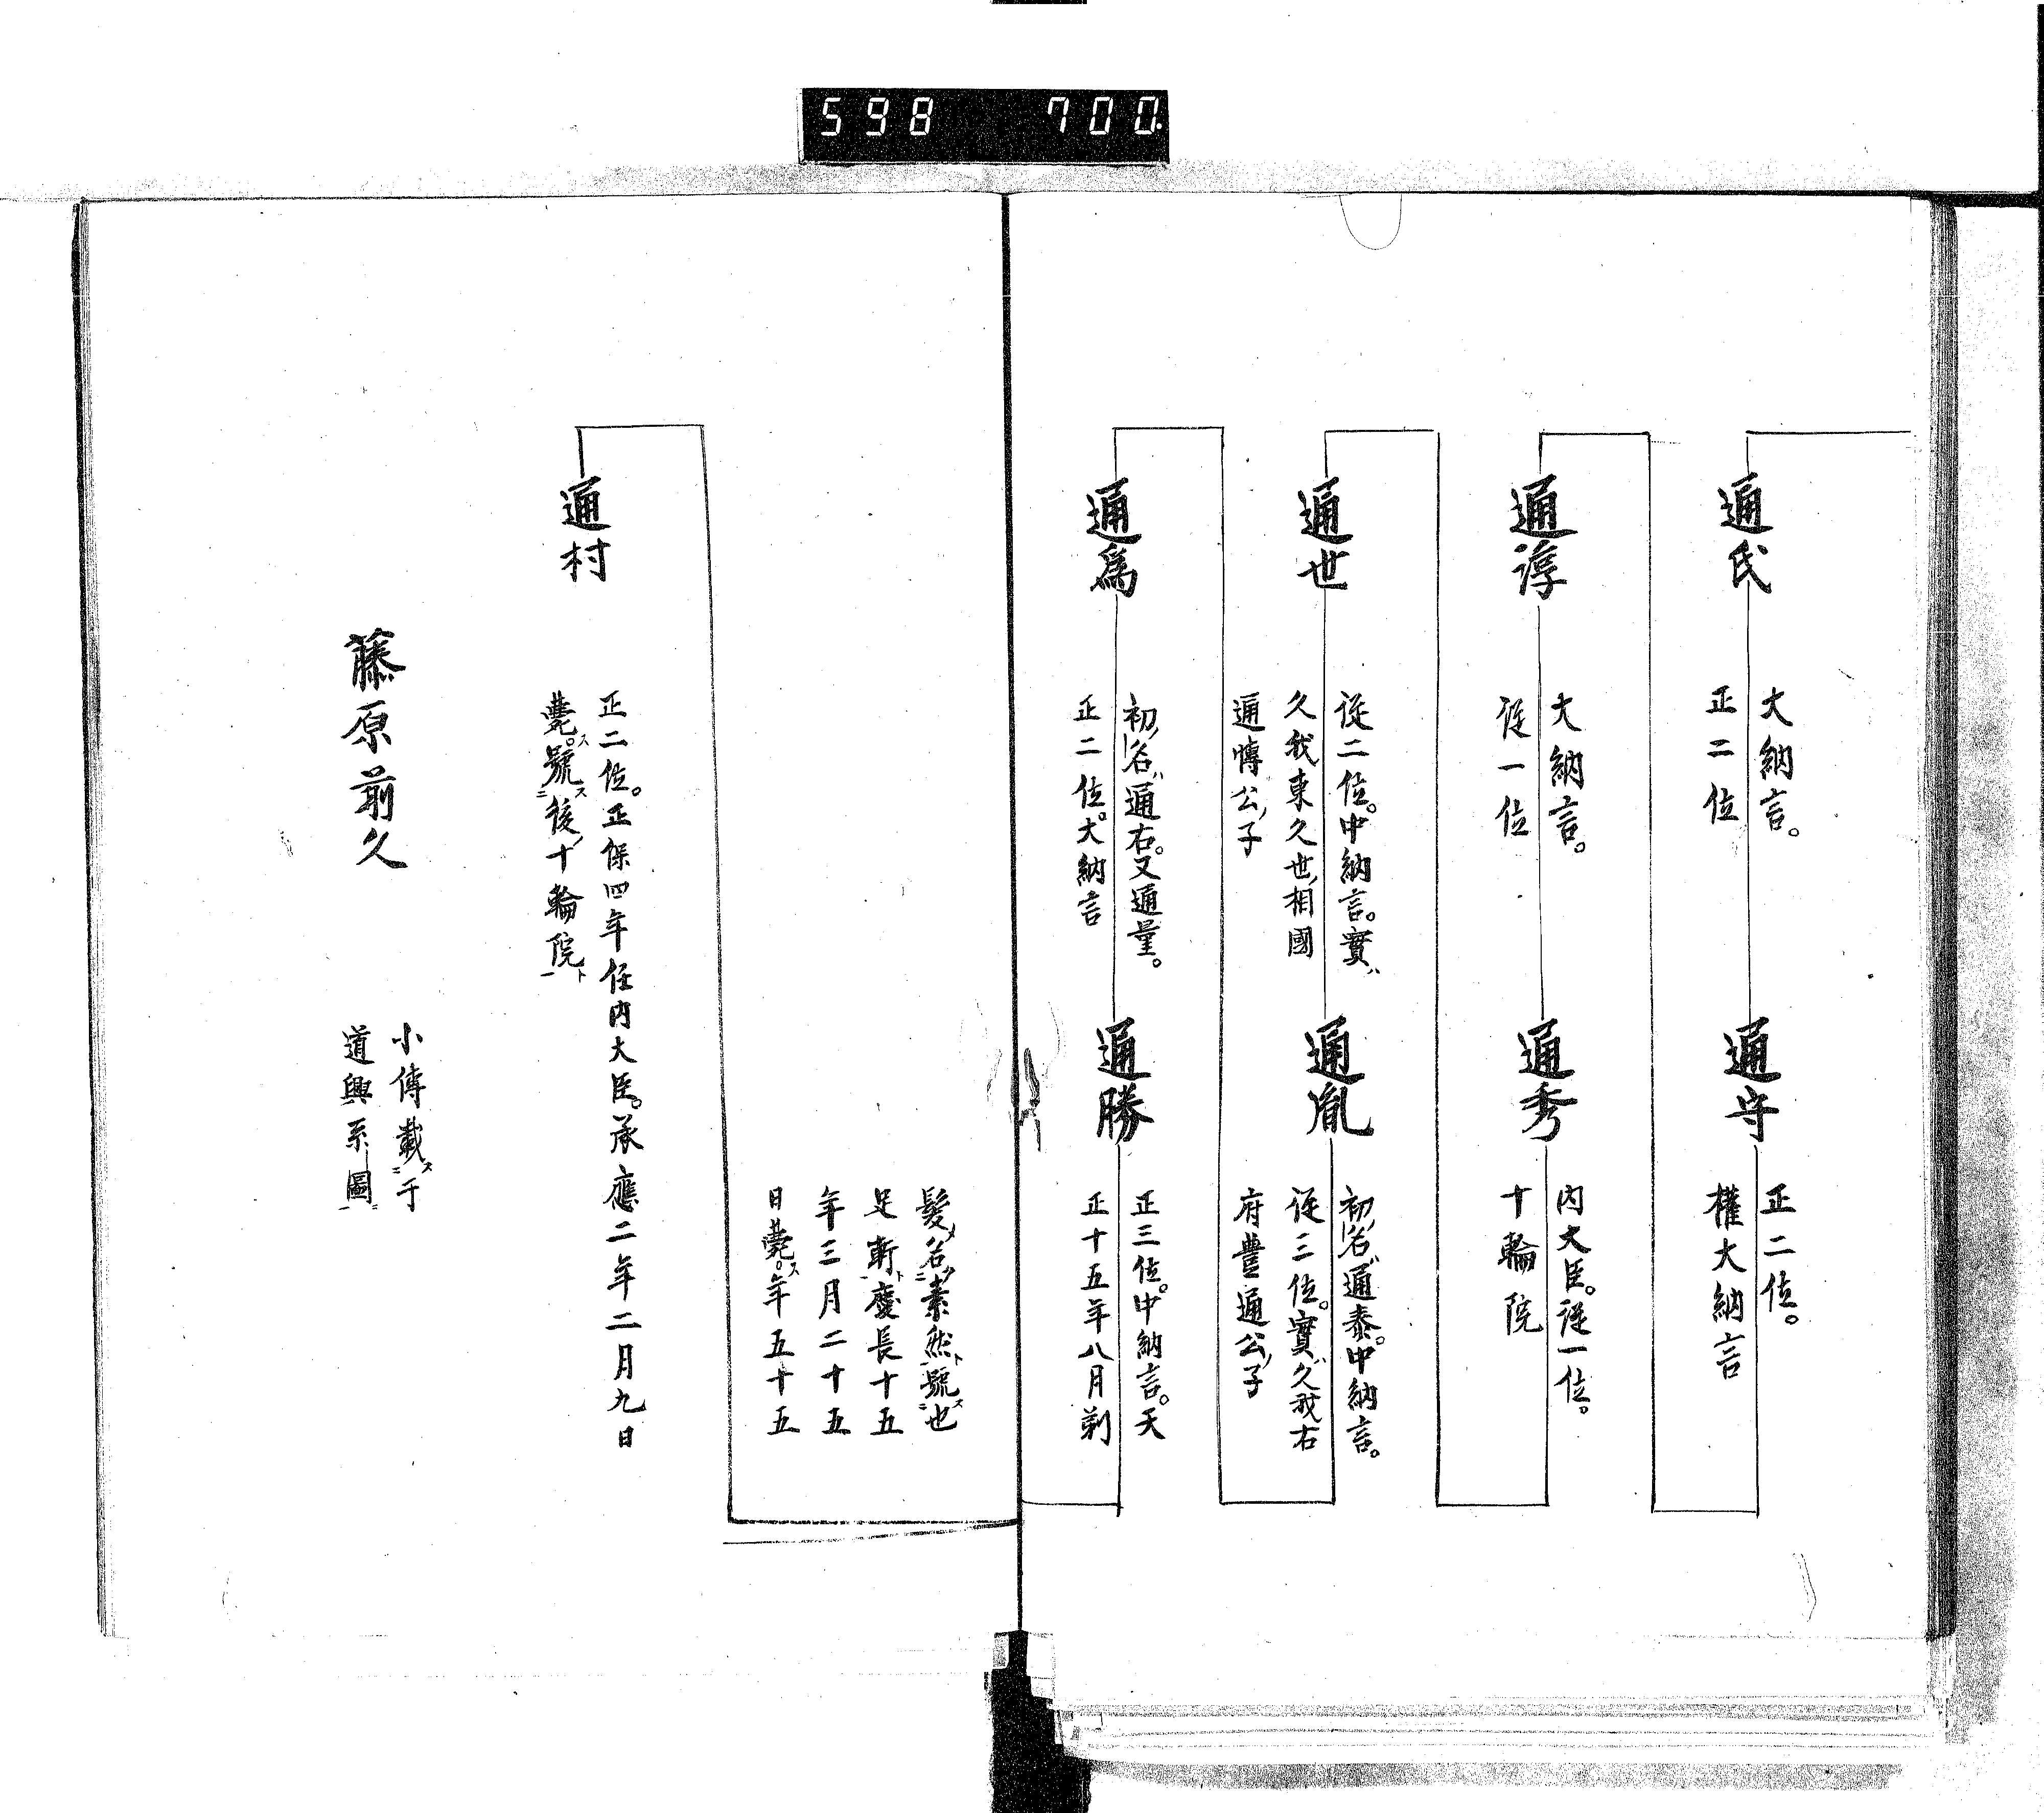 598 700
通氏
大納言。
正二位
通守
正二位。
權大納言
通淳
大納言。
従一位
通秀
内大臣。従一位。
十輪院
通世
従二位。中納言。實ハ
久我東久世ノ相國
通博公ノ子
通胤
初ノ名ハ通泰。中納言。
従三位。實ハ久我右
府豊通公ノ子
通爲
初ノ名ハ通右。又通量。
正二位。大納言
通勝
正三位。中納言。天
正十五年八月剃
髪メ名ヅ二素然ト一號ス二也
足軒ト一慶長十五
年三月二十五
日薨ス。年五十五
通村
正二位。正保四年任内大臣。承應二年二月九日
薨ス。號ス二後ノ十輪院ト一
藤原前久
小傳載ス二于
道興系圖ニ一